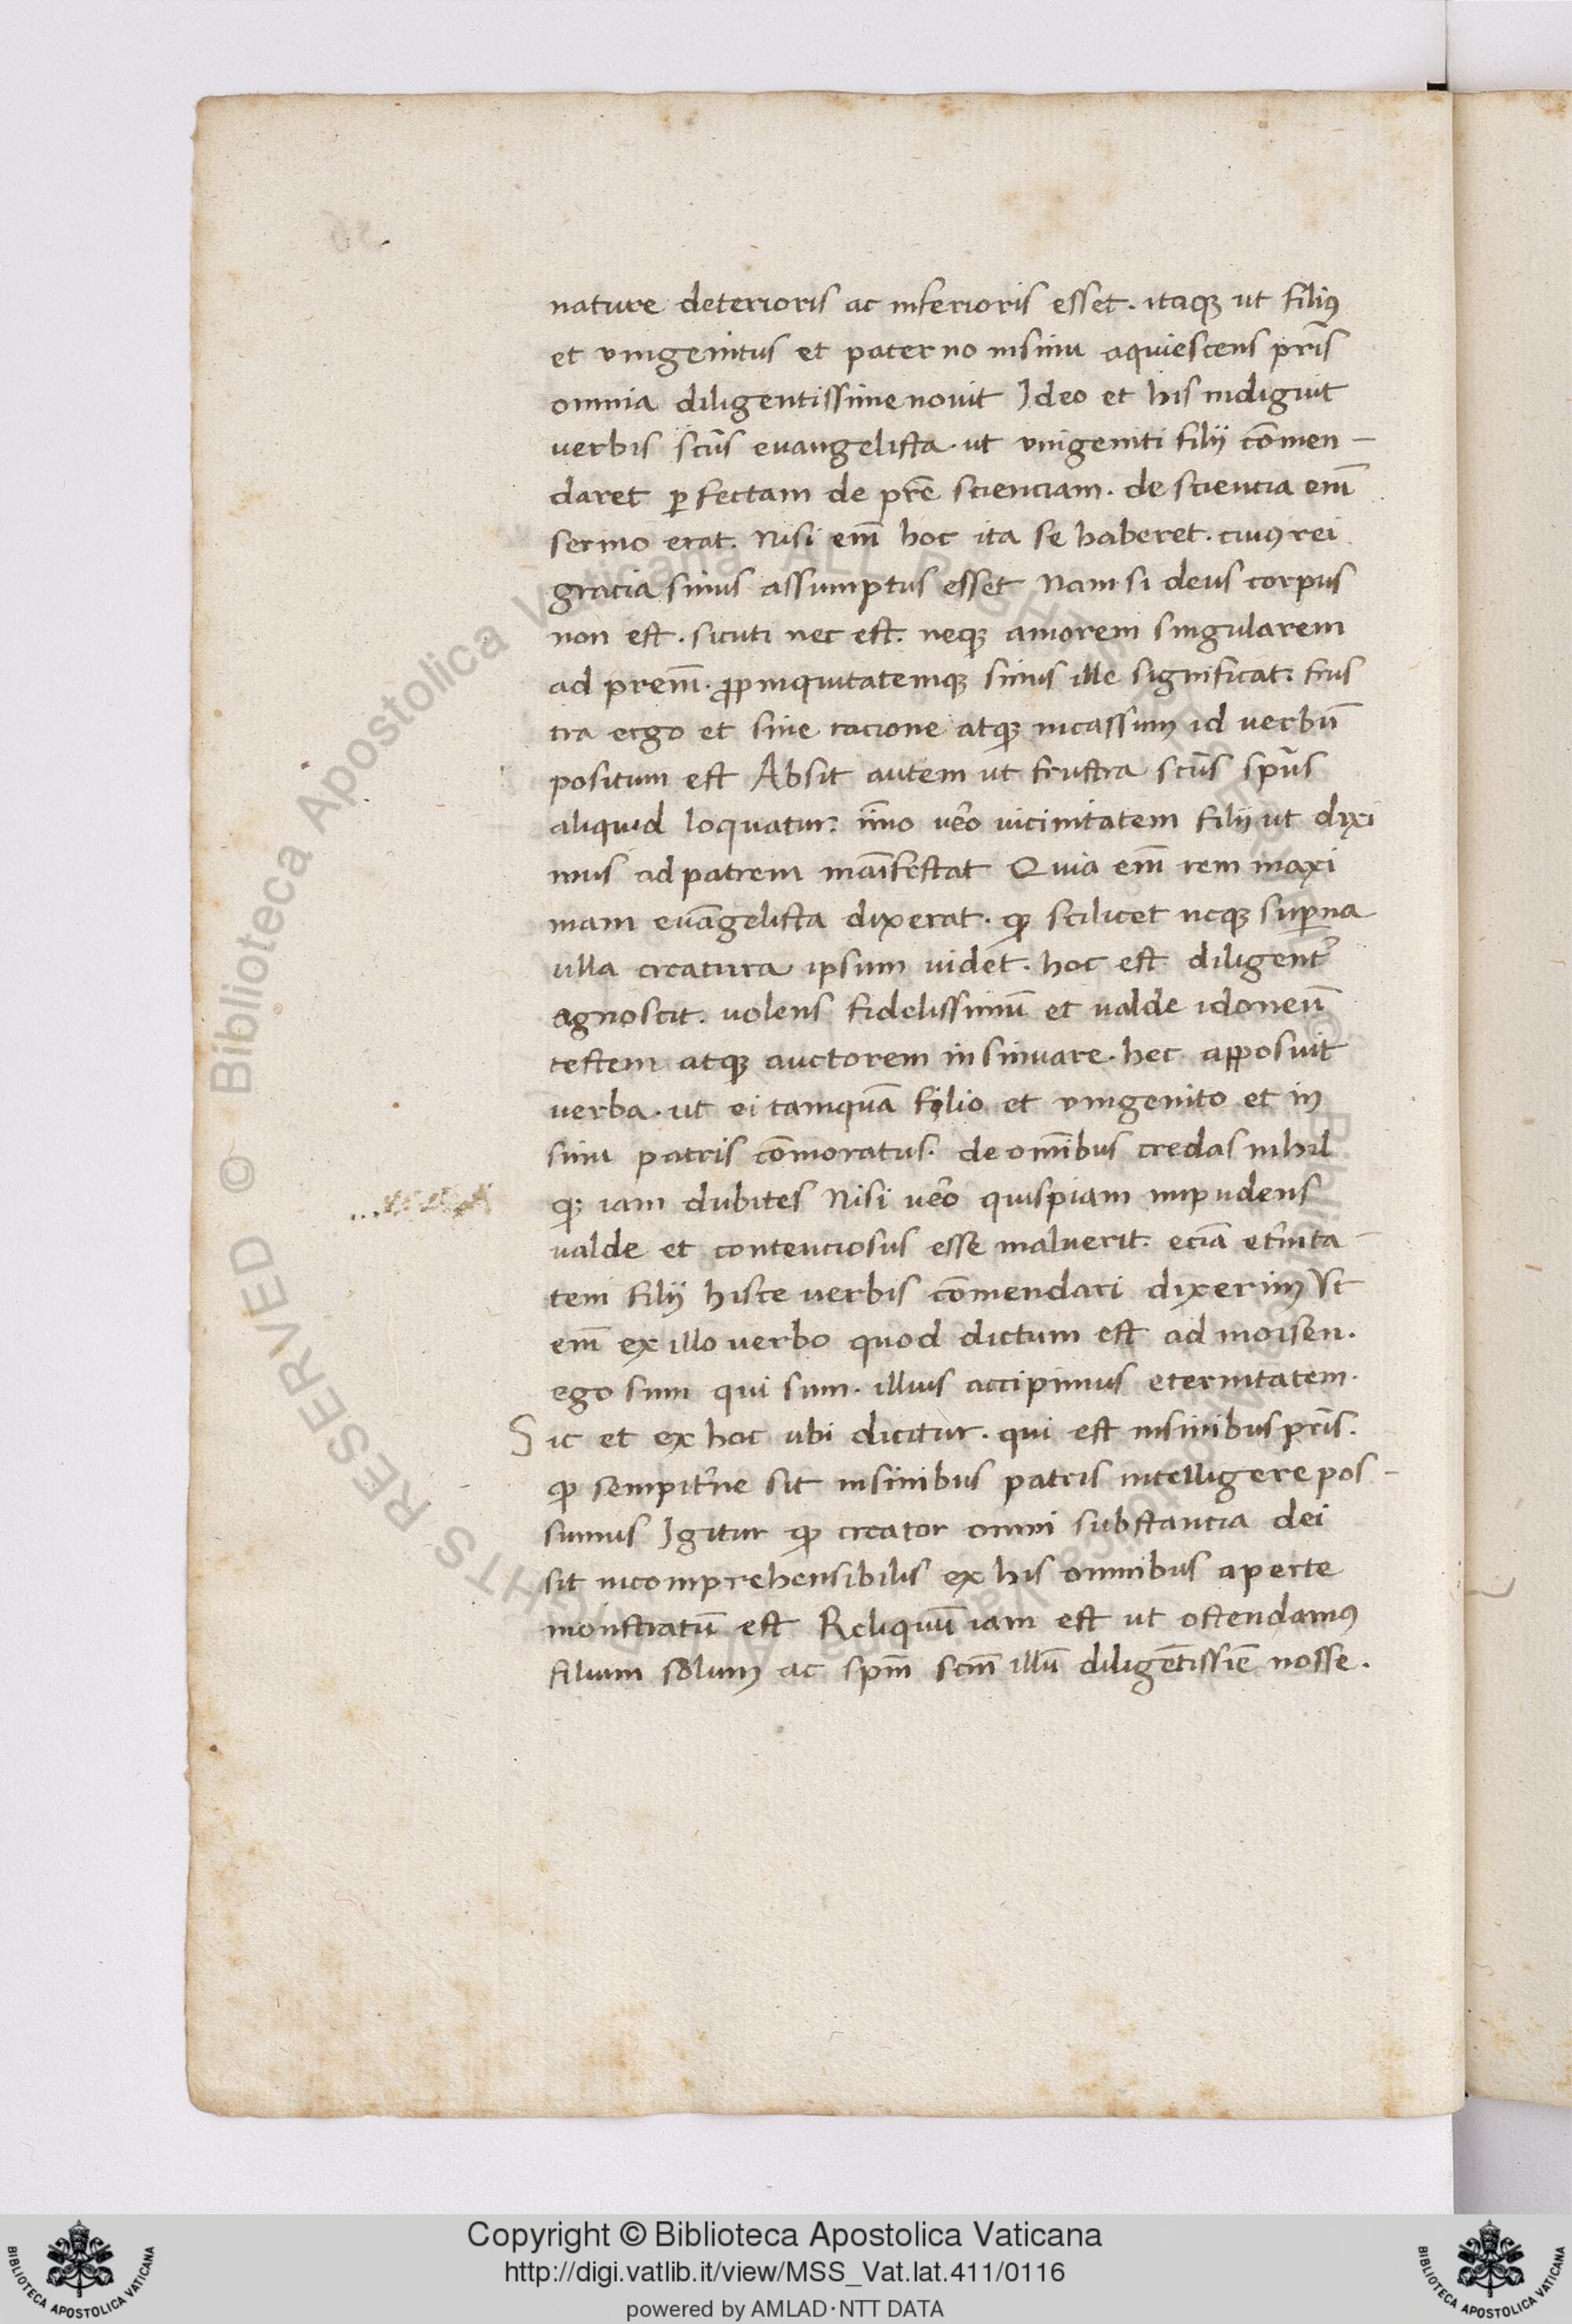 nature deterioris ac inferioris esset. itaqꝫ ut filiꝰ
et vnigenitus et paterno insinu aquiescens pr̄is
omnia diligentissime novit Ideo et his indiguit
verbis sc̄us evangelista. ut vnigeniti filij cōmen-
daret ꝑfectam de pr̄e scienciam. de sciencia eni͞m
sermo erat. Nisi em̄ hoc ita se haberet. cuiꝰ rei
gracia sinus assumptus esset Nam si deus corpus
non est. sicuti nec est. neqꝫ amorem singularem
ad prem̄. ꝓpinquitatemqꝫ sinus ille significat. frus
tra ergo et sine racione atqꝫ incassum id verbū
positum est Absit autem ut frustra sc̄us sp̄us
aliquid loquatur. īmo ūero vicinitatem filij ut dixi
mus ad patrem maīfestat Quia em̄ rem maxi
mam evāgelista dixerat. ꝙ scilicet neqꝫ suꝑna
ulla creatura ipsum videt. hoc est diligent̄
agnoscit. volens fidelissimū et valde idoneū
testem atqꝫ auctorem insinuare. hec apposuit
verba. ut ei tamquā filio et vnigenito et in
sinu patris cōmoratus. de om̄ibus credas nihil
qꝫ iam dubites Nisi ūero quispiam impudens
valde et contenciosus esse maluerit. eciā et̄nita-
tem filij hisce verbis cōmendari dixerim Vt
em̄ ex illo verbo quod dictum est ad moisen.
ego sum qui sum. illius accipimus eternitatem.
Sic et ex hoc ubi dicitur. qui est insinibus pr̄is.
ꝙ sempit̄ne sit insinibus patris intelligere pos-
sumus Igitur ꝙ creator omni substancia dei
sit incomprehensibilis ex his omnibus aperte
monstratū est Reliquū iam est ut ostendamꝰ
filium solum ac sp̄m sc̄m illū diligētissi͞e nosse.
© Biblioteca Apostolica Vaticana ALL RIGHTS RESERVED
Copyright © Biblioteca Apostolica Vaticana
http://digi.vatlib.it/view/MSS_Vat.lat.411/0116
powered by AMLAD·NTT DATA
BIBLIOTECA APOSTOLICA VATICANA
BIBLIOTECA APOSTOLICA VATICANA